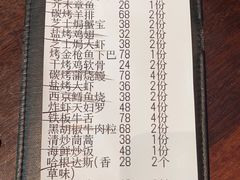 芥末章鱼 26 1份
碳烤羊排 68 2份
芝士焗蟹宝 38 2份
盐烤鸡翅 32 2份
芝士焗大虾 38 2份
烤金枪鱼下巴 78 1份
干烤鸡软骨 24 2份
碳烤蒲烧鳗 78 4份
盐烤大虾 36 2份
西京鳕鱼烧 56 2份
炸虾天妇罗 38 4份
铁板牛舌 78 4份
黑胡椒牛肉粒 68 2份
清炒茼蒿 38 1份
海鲜炒饭 48 1份
哈根达斯(香 28 2个
草味)